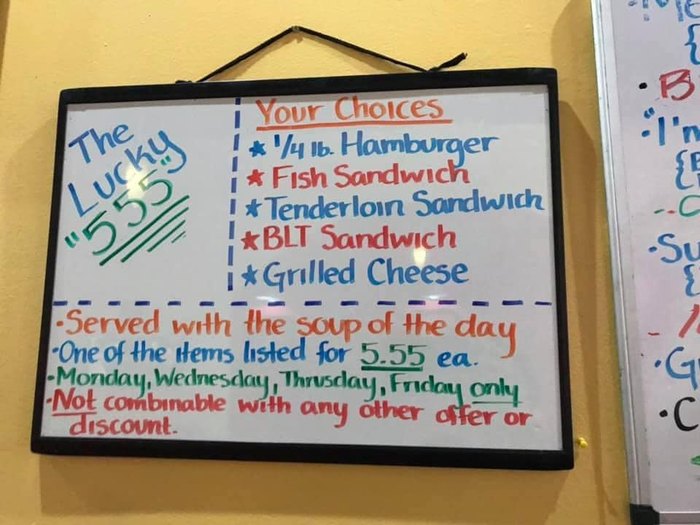 The
Lucky
"555"
Your Choices
* 1/4 lb. Hamburger
* Fish Sandwich
* Tenderloin Sandwich
* BLT Sandwich
* Grilled Cheese
•Served with the soup of the day
•One of the items listed for 5.55 ea.
•Monday, Wednesday, Thrusday, Friday only
•Not combinable with any other offer or
discount.
•B
•"I'm
•Su
•G
•C